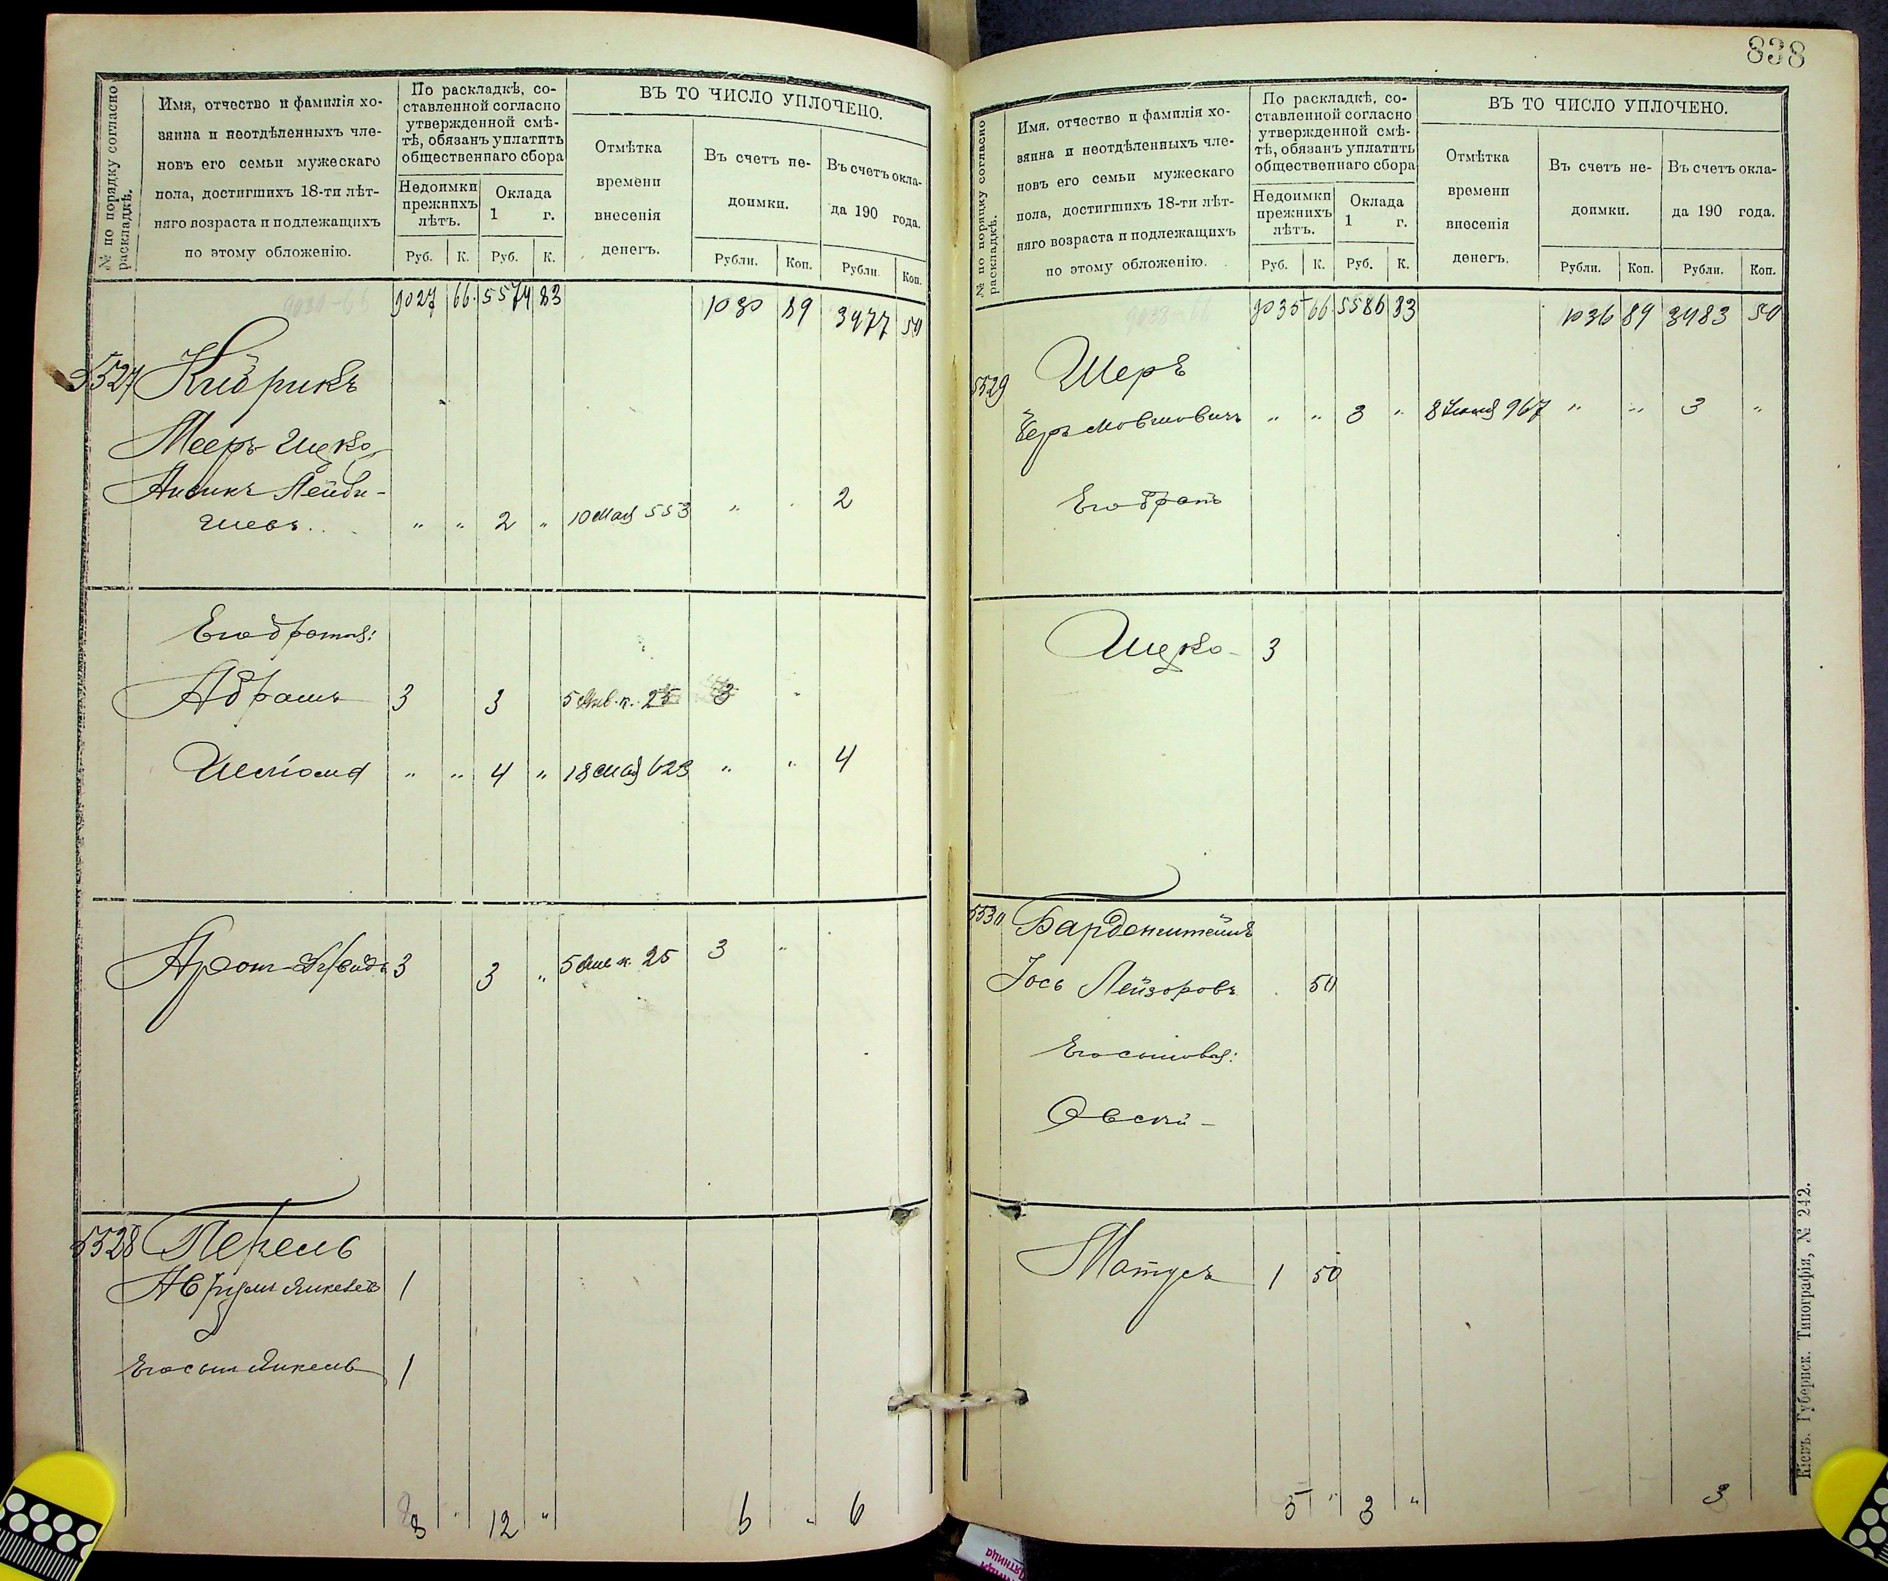 838
№ по порядку согласно раскладкѣ.
Имя, отчество и фамилія хо-
зяина и неотдѣленныхъ чле-
новъ его семьи мужескаго
пола, достигшихъ 18-ти лѣт-
няго возраста и подлежащихъ
по этому обложенію.
По раскладкѣ, со-
ставленной согласно
утвержденной смѣ-
тѣ, обязанъ уплатить
общественнаго сбора
Недоимки прежнихъ лѣтъ.
Оклада 1 г.
ВЪ ТО ЧИСЛО УПЛОЧЕНО.
Отмѣтка времени внесенія денегъ.
Въ счетъ не-доимки.
Въ счетъ окла-да 190 года.
Руб. К. Руб. К. Рубли. Коп. Рубли. Коп.
9027 66 5574 83 1030 89 3477 50
5527 Кидрикъ
Мееръ Ицко
Айзикъ Лейби-
шевъ. " " 2 " 10 Мая 553 " " 2
Его братья:
Абрамъ 3 3 5 Янв. к. 25 3 "
" " 4 " 18 Мая 623 " " 4
Аронъ 3 3 " 5 к. 25 3 "
5528 Перель
Аврумъ Янкелев 1
Его сын Янкель 1
8 " 12 " 6 " 6
№ по порядку согласно раскладкѣ.
Имя, отчество и фамилія хо-
зяина и неотдѣленныхъ чле-
новъ его семьи мужескаго
пола, достигшихъ 18-ти лѣт-
няго возраста и подлежащихъ
по этому обложенію.
По раскладкѣ, со-
ставленной согласно
утвержденной смѣ-
тѣ, обязанъ уплатить
общественнаго сбора
Недоимки прежнихъ лѣтъ.
Оклада 1 г.
ВЪ ТО ЧИСЛО УПЛОЧЕНО.
Отмѣтка времени внесенія денегъ.
Въ счетъ не-доимки.
Въ счетъ окла-да 190 года.
Руб. К. Руб. К. Рубли. Коп. Рубли. Коп.
9035 66 5586 83 1036 89 3483 50
5529 Шеръ
Беръ Мовшовичъ " " 3 " 8 967 " " 3 "
Его братъ
Ицко 3
5530 Барденштейнъ
Іось Лейзоровъ 50
Его сыновья:
Овсей
Матусъ 1 50
5 " 3 " 3
Кіевъ. Губернск. Типографія, № 242.